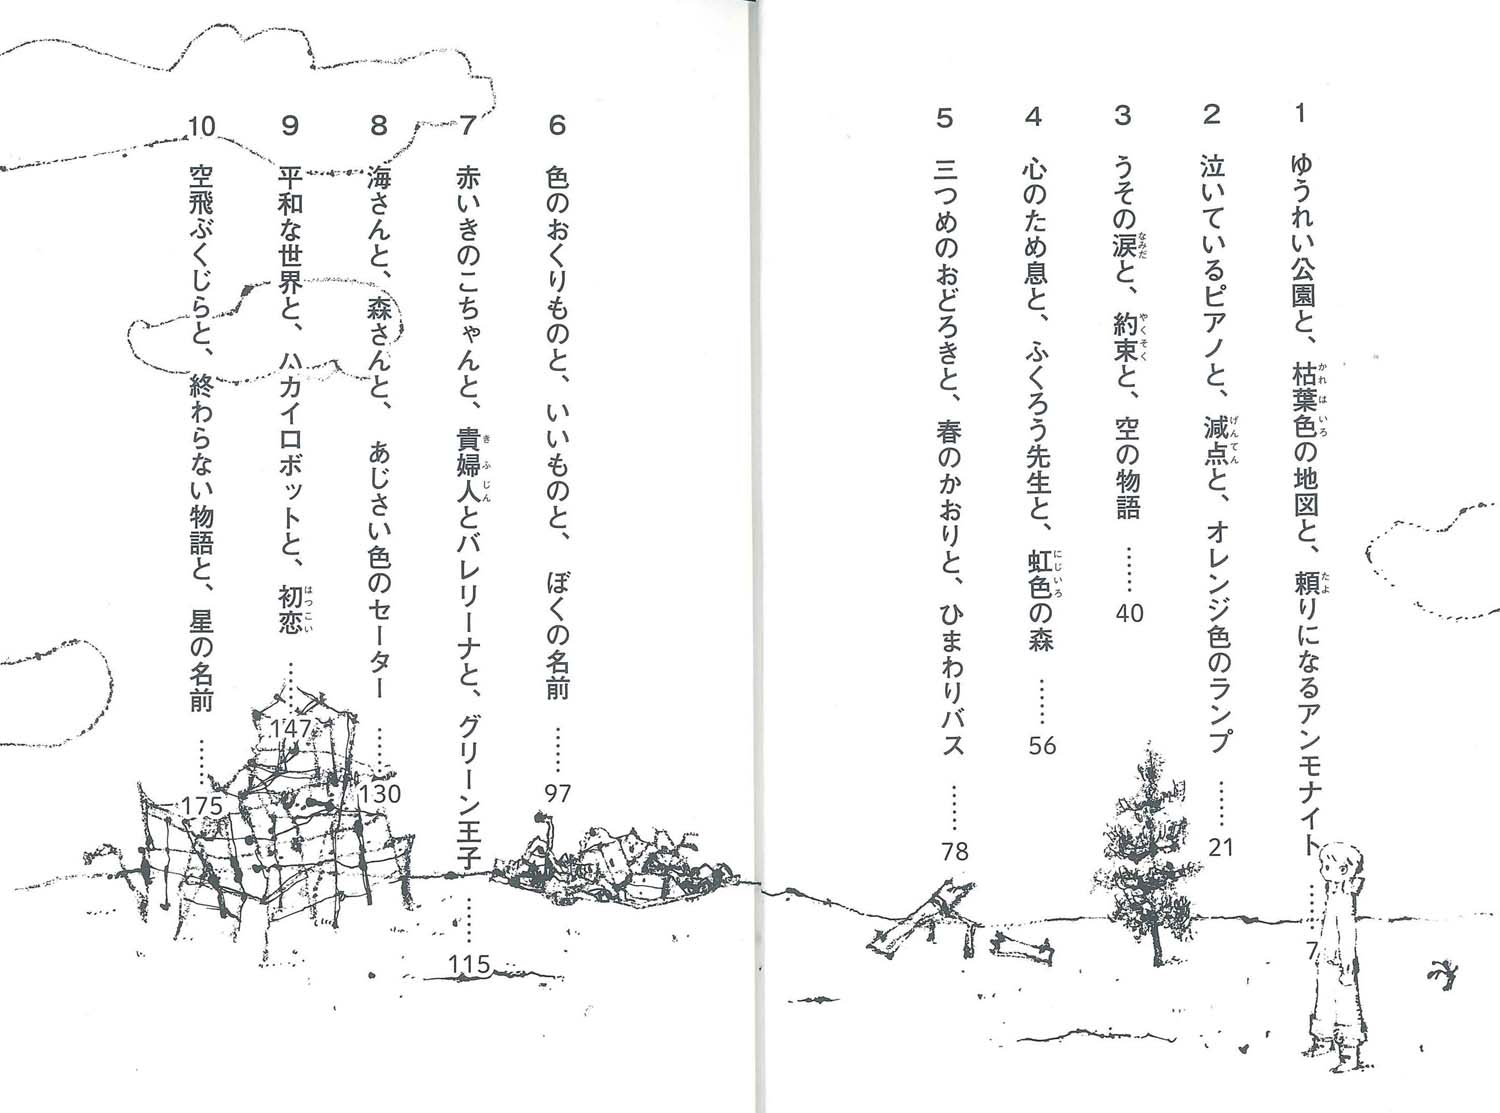 1 ゆうれい公園と、枯葉色の地図と、頼りになるアンモナイト ……… 7
かれはいろ
たよ
2 泣いているピアノと、減点と、オレンジ色のランプ …… 21
げんてん
3 うその涙と、約束と、空の物語 …… 40
なみだ
やくそく
4 心のため息と、ふくろう先生と、虹色の森 …… 56
にじいろ
5 三つめのおどろきと、春のかおりと、ひまわりバス …… 78
6 色のおくりものと、いいものと、ぼくの名前 …… 97
7 赤いきのこちゃんと、貴婦人とバレリーナと、グリーン王子 …… 115
きふじん
8 海さんと、森さんと、あじさい色のセーター …… 130
9 平和な世界と、ハカイロボットと、初恋 …… 147
はつこい
10 空飛ぶくじらと、終わらない物語と、星の名前 …… 175